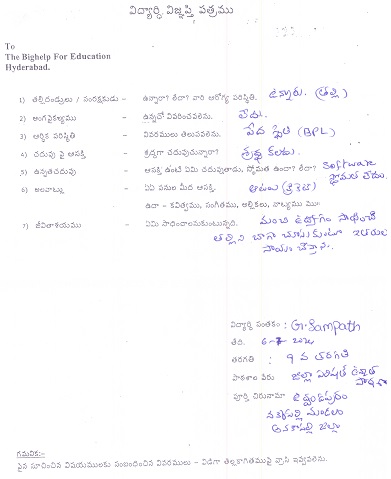 విద్యార్ధి విజ్ఞప్తి పత్రము
To
The Bighelp For Education
Hyderabad.
1) తల్లిదండ్రులు / సంరక్షకుడు – ఉన్నారా? లేదా? వారి ఆరోగ్య పరిస్థితి. ఉన్నారు. (తల్లి)
2) అంగవైకల్యము – ఉన్నచో వివరించవలెను. లేదు.
3) ఆర్థిక పరిస్థితి – వివరములు తెలుపవలెను. పేద స్థితి (BPL)
4) చదువు పై ఆసక్తి – శ్రద్ధగా చదువుచున్నారా? శ్రద్ధ కలదు.
5) ఉన్నతచదువు – ఆసక్తి ఉంటే ఏమి చదువుతాడు, స్తోమత ఉందా? లేదా? Software స్తోమత లేదు.
6) అలవాట్లు – ఏఏ పనుల మీద ఆసక్తి. ఆటలు (క్రికెట్)
ఉదా – కవిత్వము, సంగీతము, అల్లికలు, నాట్యము ము॥
7) జీవితాశయము – ఏమి సాధించాలనుకుంటున్నది. మంచి ఉద్యోగం సాధించి
తల్లిని బాగా చూసుకుంటూ ఇతరులకు
సాయం చేస్తాను.
విద్యార్థి సంతకం : G. Sampath
తేది. 6-7-2024
తరగతి : 9 వ తరగతి
పాఠశాల పేరు : జిల్లా పరిషత్ ఉన్నత
పాఠశాల
పూర్తి చిరునామా :
నక్కపల్లి మండలం
అనకాపల్లి జిల్లా
గమనిక:-
పైన సూచించిన విషయములకు సంబంధించిన వివరములు – విడిగా తెల్లకాగితముపై వ్రాసి ఇవ్వవలెను.